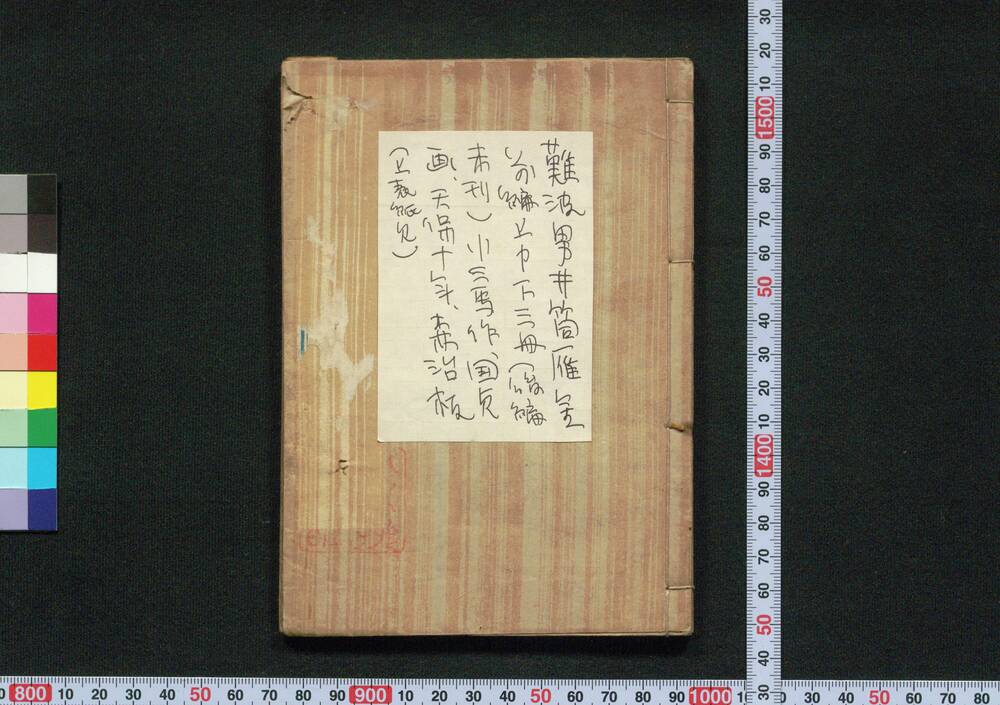 難波男井筒雁金
前編上中下三冊(後編
未刊)小三馬作、国貞
画、天保十年、森治板
(上表紙欠)
30 20 10 1500 90 80 70 60 50 40 30 20 10 1400 90 80 70 60 50 40 30
800 10 20 30 40 50 60 70 80 90 900 10 20 30 40 50 60 70 80 90 1000 30 40 50 60 70 80